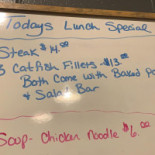 Todays Lunch Special
Steak $14.00
3 Catfish Fillets - $13.00
Both Come with Baked
& Salad Bar
Soup - Chicken Noodle $6.00